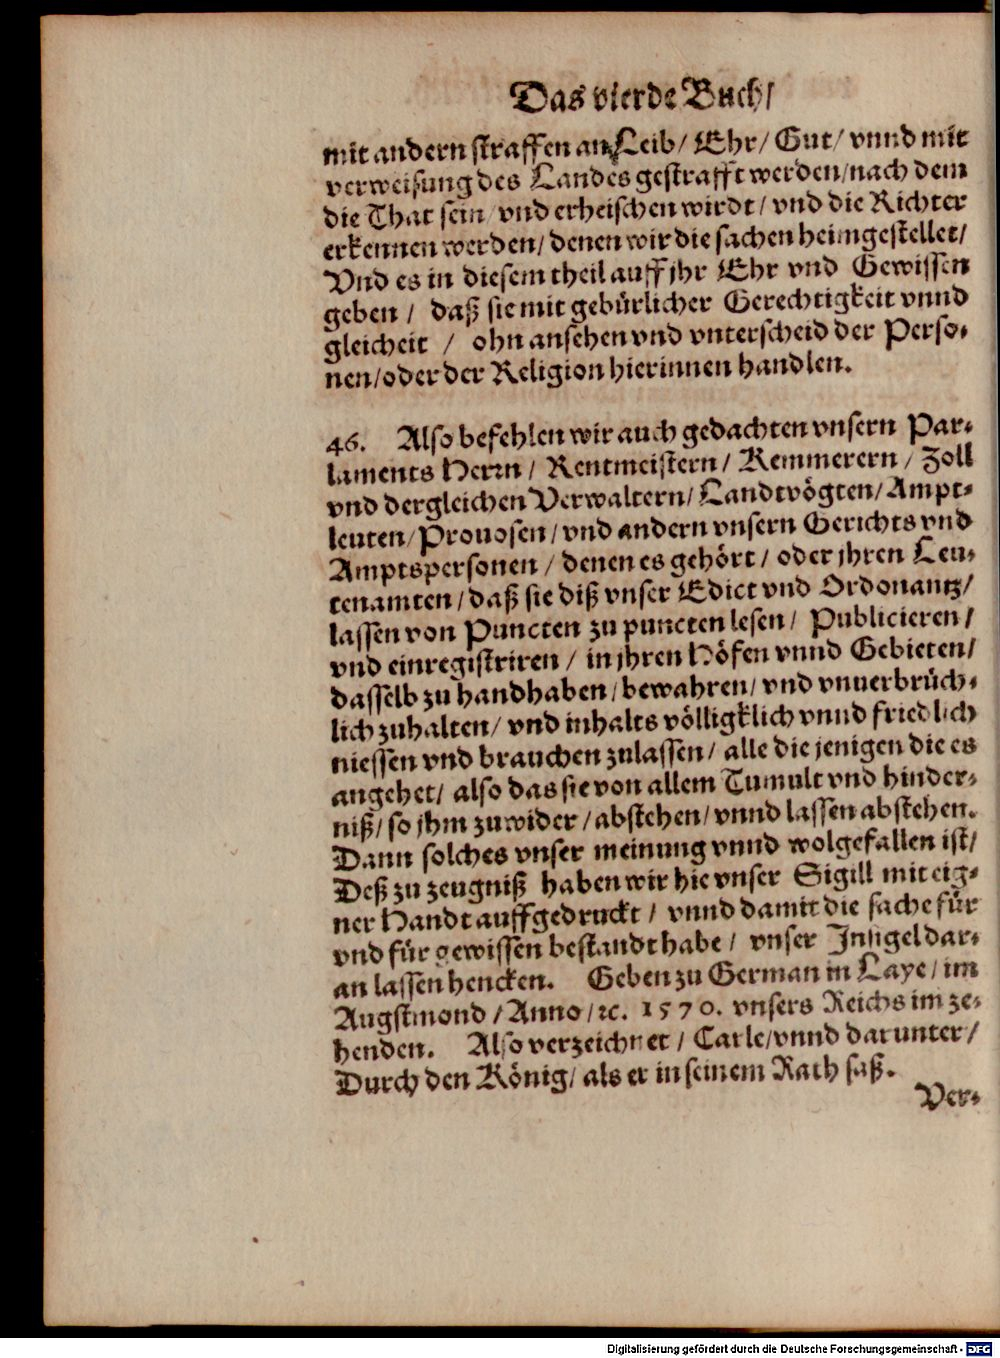 Das vierde Buch/
mit andern straffen an Leib/ Ehr/ Gut/ vnnd mit
verweisung des Landes gestrafft werden/nach dem
die That sein/ vnd erheischen wirdt/ vnd die Richter
erkennen werden/ denen wir die sachen heimgestellet/
Vnd es in diesem theil auff jhr Ehr vnd Gewissen
geben / daß sie mit gebürlicher Gerechtigkeit vnnd
gleicheit / ohn ansehen vnd vnterscheid der Perso-
nen/oder der Religion hierinnen handlen.
46. Also befehlen wir auch gedachten vnsern Par-
laments Herrn / Rentmeistern / Kemmerern / Zoll
vnd dergleichen Verwaltern/ Landtvögten/ Ampt-
leuten/ Prouosen / vnd andern vnsern Gerichts vnd
Amptspersonen / denen es gehört / oder jhren Leu-
tenamten / daß sie diß vnser Edict vnd Ordonantz/
lassen von Puncten zu puncten lesen / Publicieren /
vnd einregistriren / in jhren Höfen vnnd Gebieten/
dasselb zu handhaben / bewahren/ vnd vnuerbrüch-
lich zuhalten/ vnd inhalts völligklich vnnd friedlich
niessen vnd brauchen zulassen / alle die jenigen die es
angehet/ also das sie von allem Tumult vnd hinder-
niß/ so jhm zuwider / abstehen/ vnnd lassen abstehen.
Dann solches vnser meinung vnnd wolgefallen ist/
Deß zu zeugniß haben wir hie vnser Sigill mit eig-
ner Handt auffgedruckt / vnnd damit die sache für
vnd für gewissen bestandt habe / vnser Insigel dar-
an lassen hencken. Geben zu German in Laye / im
Augstmond / Anno / ꝛc. 1570. vnsers Reichs im ze-
henden. Also verzeichnet / Carle/ vnnd darunter /
Durch den König/ als er in seinem Rath saß.
Ver-
Digitalisierung gefördert durch die Deutsche Forschungsgemeinschaft - DFG